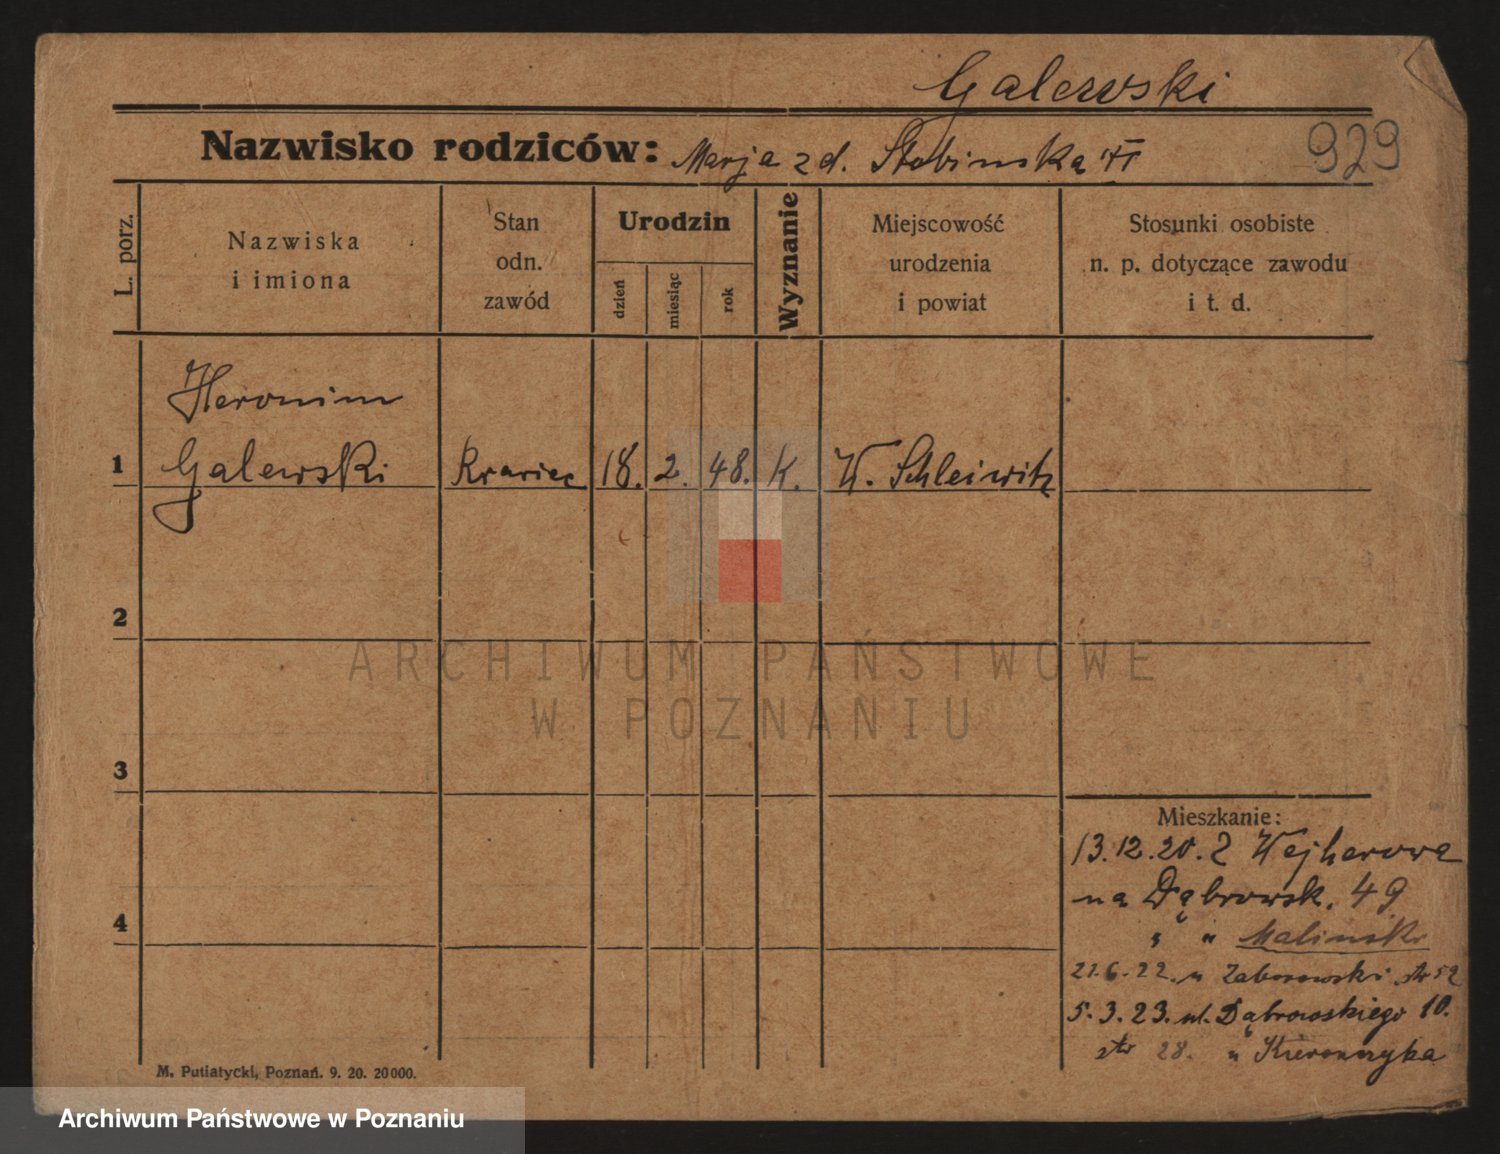 Galewski
Nazwisko rodziców: Marja z d. Stobinska
929
L. porz.
Nazwiska
i imiona
Stan
odn.
zawód
Urodzin
dzień
miesiąc
rok
Wyznanie
Miejscowość
urodzenia
i powiat
Stosunki osobiste
n. p. dotyczące zawodu
i t. d.
Heronim
1 Galewski Krawiec 18. 2. 48. K. W. Schleiwitz
2
ARCHIWUM PAŃSTWOWE
W POZNANIU
3
Mieszkanie:
13.12.20. z Wejherowa
na Dąbrowsk. 49
4
" " Malinsk
21.6.22. u Zaborowski str 52
5.3.23. ul. Dąbrowskiego 10.
str 28. u
M. Putiatycki, Poznań. 9. 20. 20000.
Archiwum Państwowe w Poznaniu